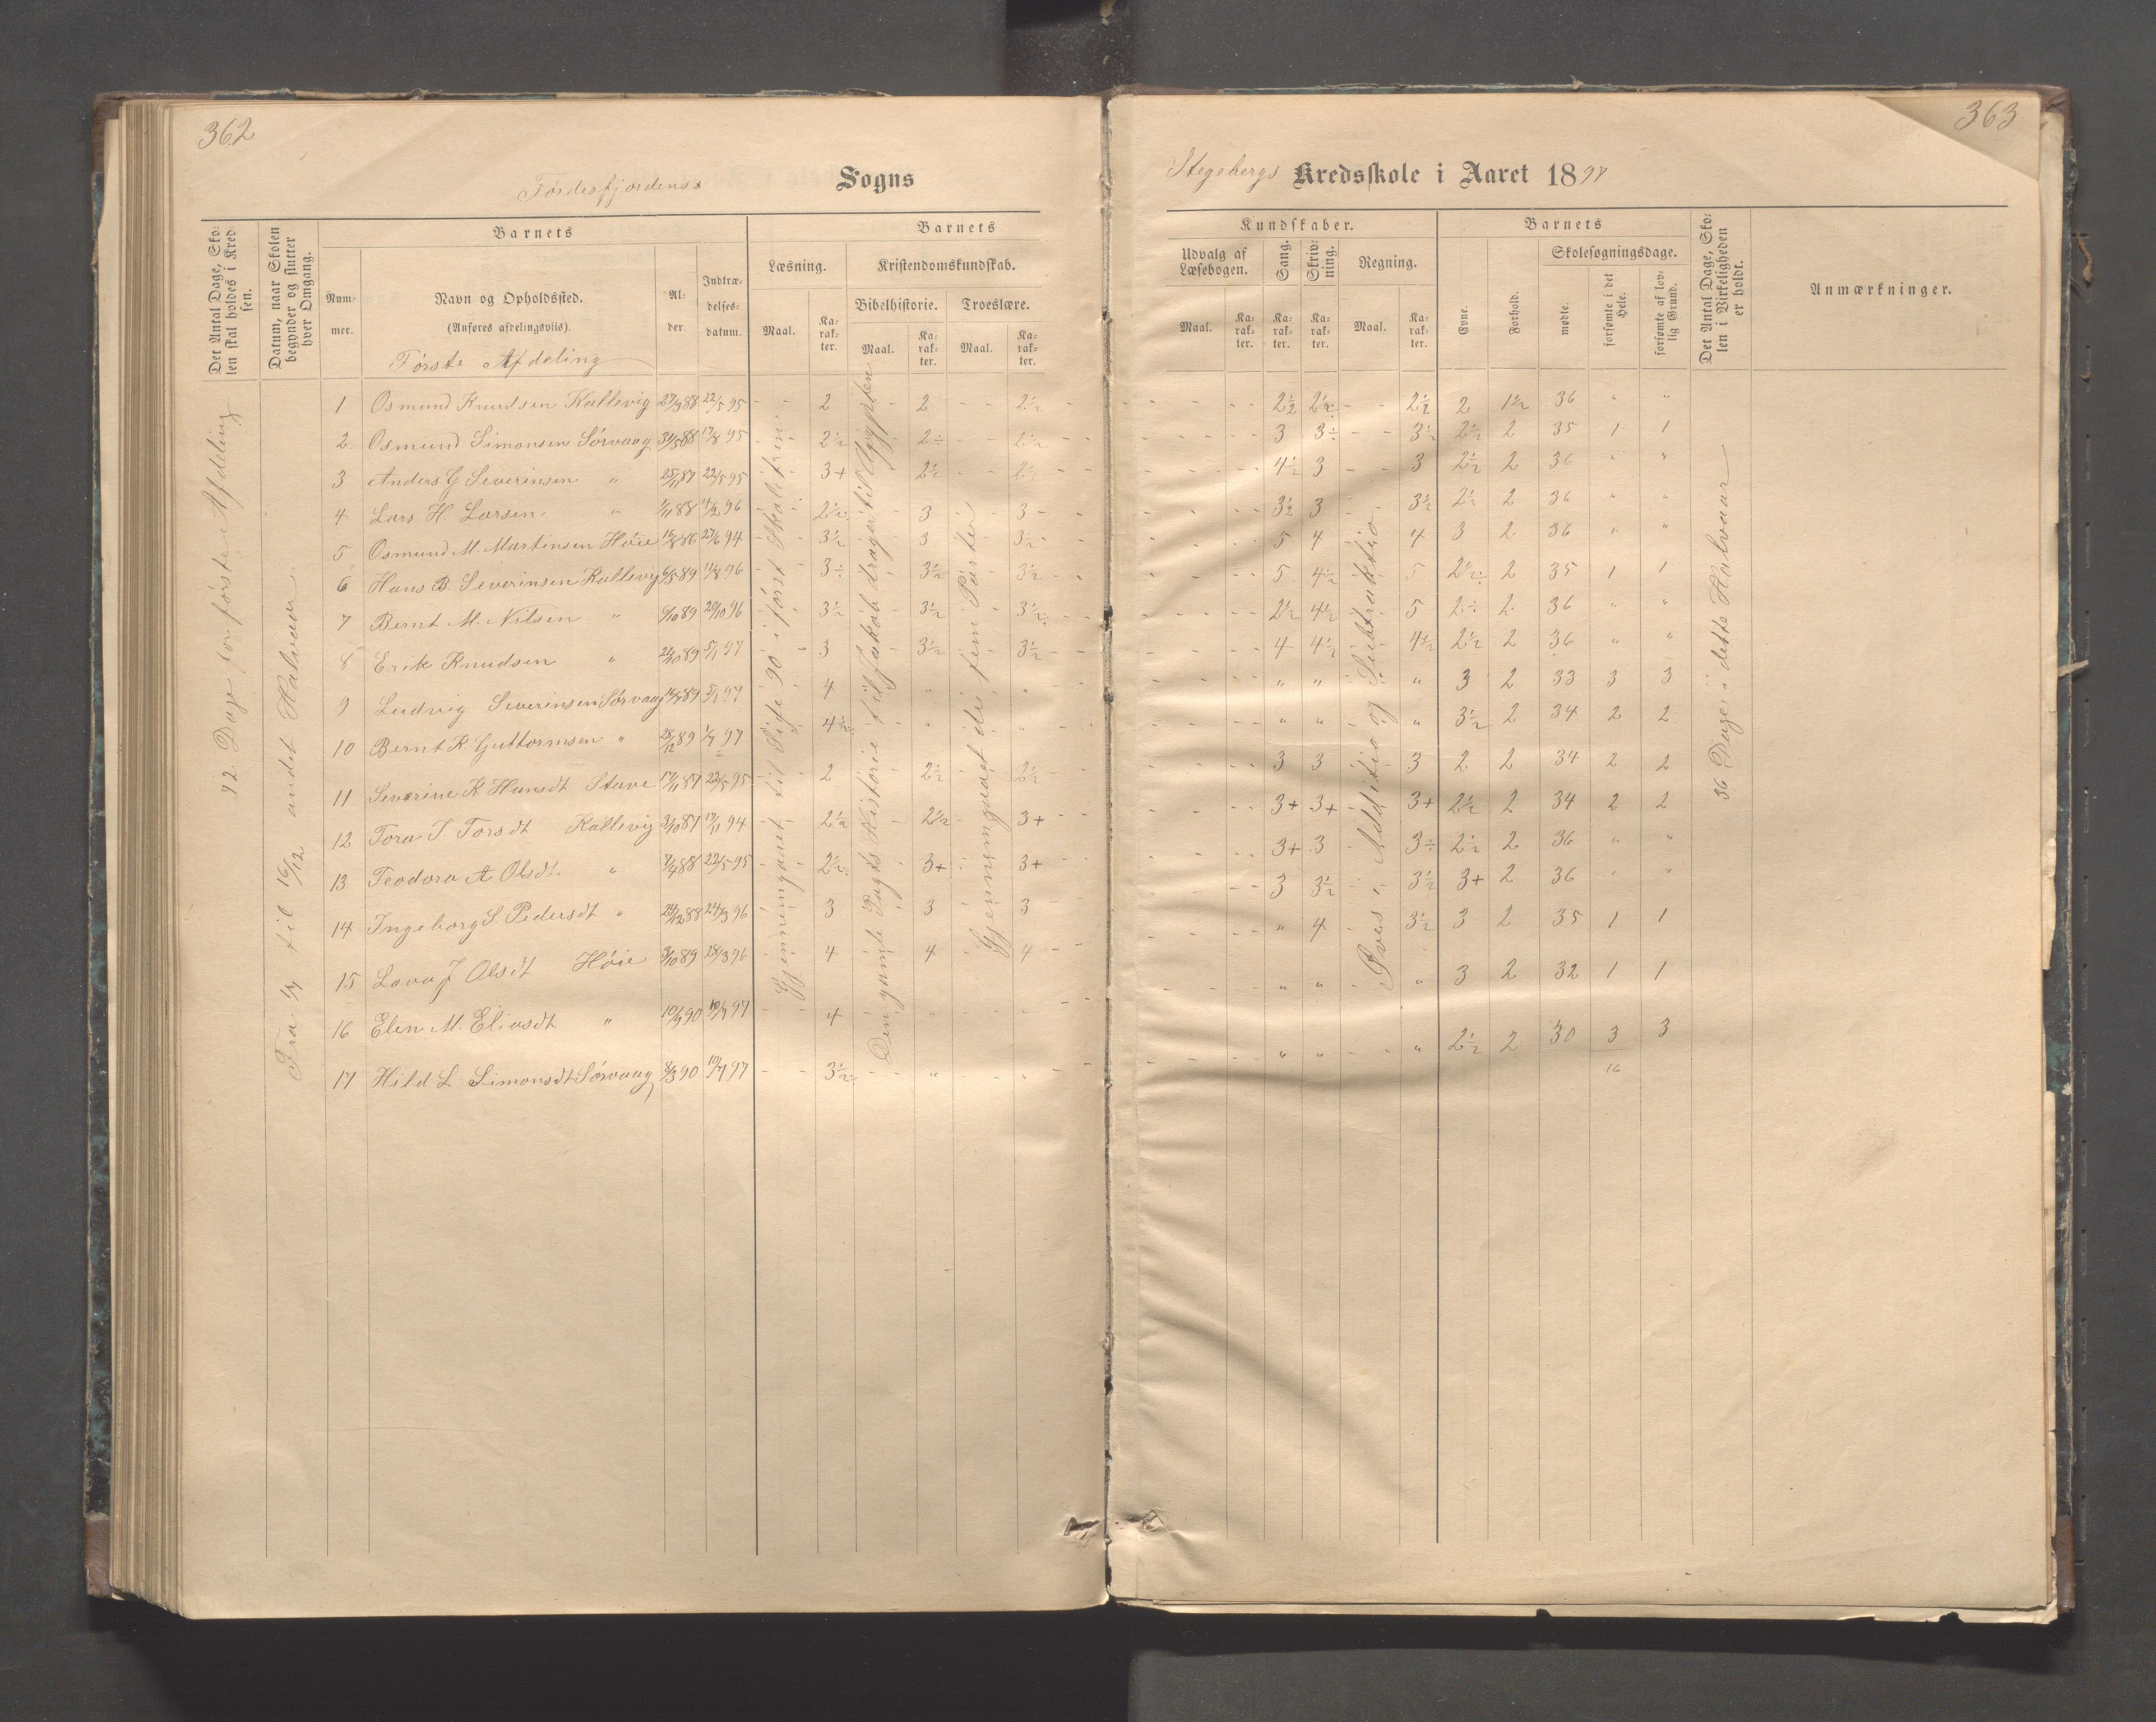 362
Fördesfjordens Sogns
Det Antal Dage, Skolen skal holdes i Kredsen.
Datum, naar Skolen begynder og slutter hver Omgang.
Barnets
Nummer.
Navn og Opholdssted.
(Anføres afdelingsviis).
Alder.
Indtrædelsesdatum.
Barnets
Læsning.
Maal.
Karakter.
Kristendomskundskab.
Bibelhistorie.
Maal.
Karakter.
Troeslære.
Maal.
Karakter.
Første Afdeling
72 Dage for første Afdeling
Fra 1/7 til 16/12 andet Halvaar
Gjennemgaaet til Side 90 i først Skoletrin
Den gamle Pagts Historie til Jakob drager til Ægypten
Gjennemgaaet de fem Parter
1 Osmund Knudsen Kallevig 27/9 88 22/5 95 2 2 2½
2 Osmund Simonsen Sørvaag 31/5 88 17/8 95 2½ 2÷ 2½
3 Anders G Severinsen " 25/11 87 22/5 95 3+ 2½ 2½
4 Lars H. Larsen " 1/11 88 4/2 96 2½ 3 3
5 Osmund M. Martinsen Høie 16/8 86 27/6 94 3½ 3 3½
6 Hans B. Severinsen Kallevig 6/5 89 11/8 96 3÷ 3½ 3½
7 Bernt M. Nilsen " 6/10 89 20/10 96 3½ 3½ 3½
8 Erik Knudsen " 24/10 89 5/1 97 3 3½ 3½
9 Ludvig Severinsen Sørvaag 5/1 97 4 " "
10 Bernt R. Guttormsen " 28/12 89 1/7 97 4½ " "
11 Severine K Hansdt Stave 17/11 87 22/5 95 2 2½ 2½
12 Tora T Torsdt Kallevig 3/10 87 17/11 94 2½ 2½ 3+
13 Teodora A Olsdt. " 7/7 88 22/5 95 2½ 3+ 3+
14 Ingeborg S. Pedersdt " 24/12 88 24/3 96 3 3 3
15 Lava J Olsdt Høie 3/10 89 28/3 96 4 4 4
16 Elen M. Eliasdt " 10/4 90 10/7 97 4 " "
17 Hild L Simonsdt Sørvaag 8/3 90 10/7 97 3½ " "
363
Stegebergs Kredsskole i Aaret 1897
Kundskaber.
Udvalg af Læsebogen.
Maal.
Karakter.
Sang.
Karakter.
Skrivning.
Karakter.
Regning.
Maal.
Karakter.
Barnets
Evne.
Forhold.
Skolesøgningsdage.
mødte.
forsømte i det Hele.
forsømte af lovlig Grund.
Det Antal Dage, Skolen i Virkeligheden er holdt.
Anmærkninger.
Øves i Additio og Subtraktio
36 Dage i dette Halvaar
2½ 2½ 2½ 2 1½ 36 " "
3 3÷ 3½ 2½ 2 35 1 1
4½ 3 3 2½ 2 36 " "
3½ 3 3½ 2½ 2 36 " "
5 4 4 3 2 36 " "
5 4½ 5 2½ 2 35 1 1
2½ 4½ 5 2÷ 2 36 " "
4 4½ 4½ 2½ 2 36 " "
" " " 3 2 33 3 3
" " " 3½ 2 34 2 2
3 3 3 2 2 34 2 2
3+ 3+ 3+ 2½ 2 34 2 2
3+ 3 3÷ 2½ 2 36 " "
3 3½ 3½ 3+ 2 36 " "
" 4 3½ 3 2 35 1 1
" " " 3 2 32 1 1
" " " 2½ 2 30 3 3
16